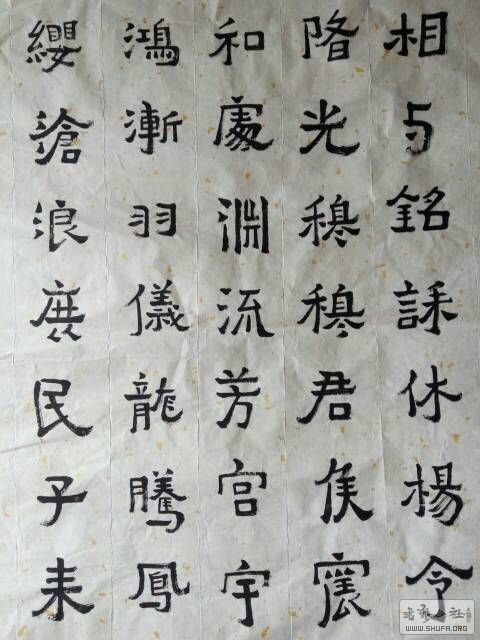 相与銘休楊令
光穆穆君侯震
和處淵流芳宮宇
鴻漸羽儀龍騰鳳
纓滄浪庶民子耒
WWW.SHUFA.ORG